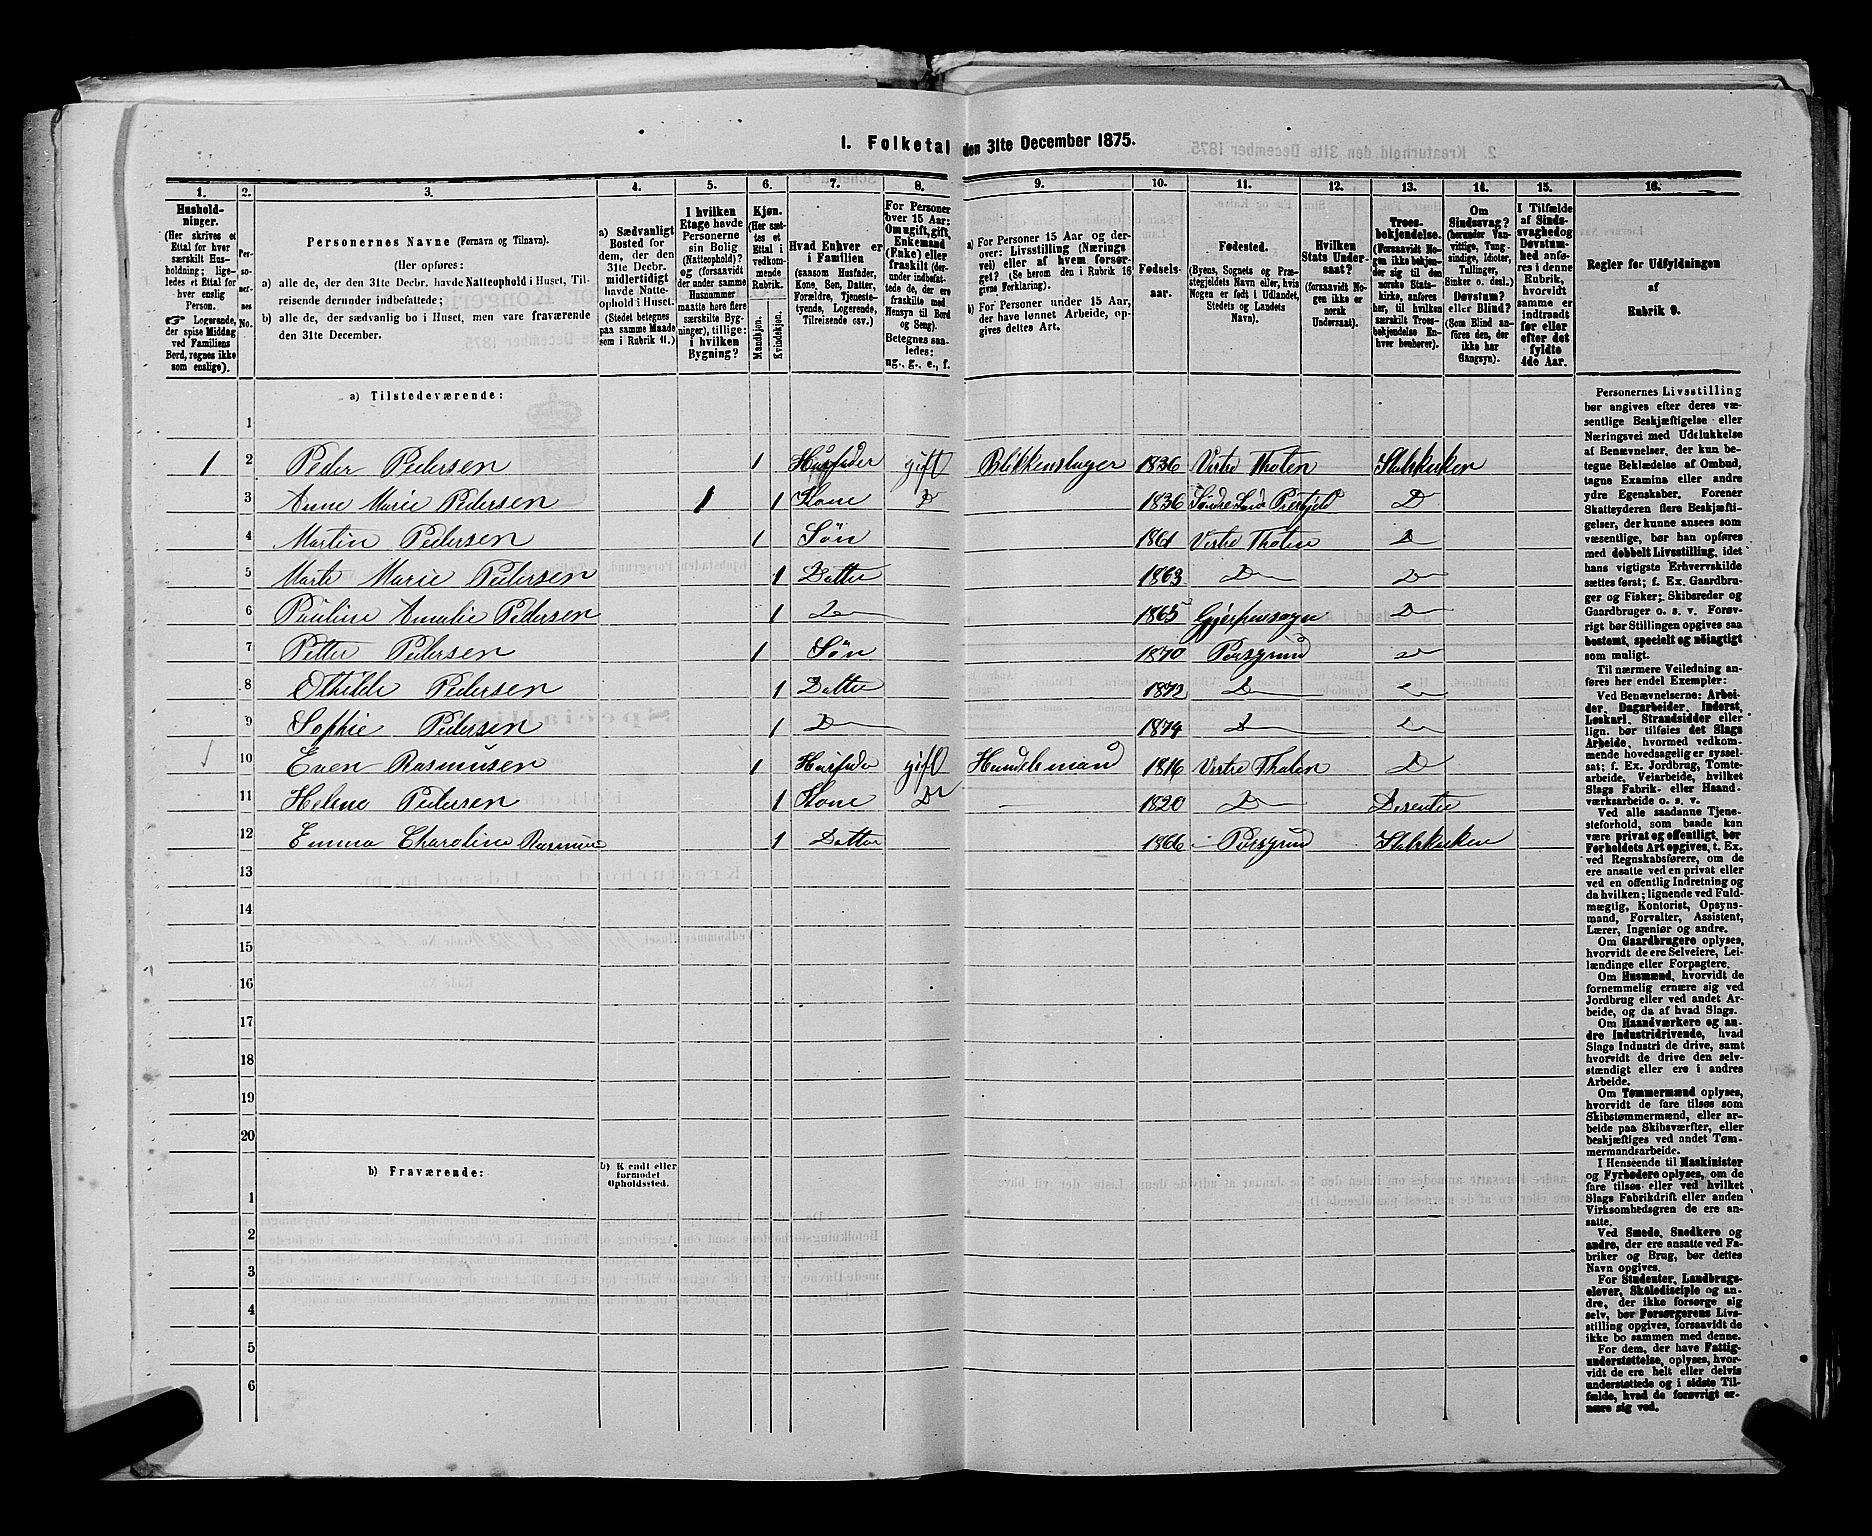 1. Folketal den 31te December 1875.
1. 2. 3. 4. 5. 6. 7. 8. 9. 10. 11. 12. 13. 14. 15. 16.
Hushold-
ninger.
(Her skrives et
Ettal for hver
særskilt Hus-
holdning; lige-
ledes et Ettal for
hver enslig
Person.
Logerende,
der spise Middag
ved Familiens
Bord, regnes ikke
som enslige).
Per-
so-
ner-
nes
No.
Personernes Navne (Fornavn og Tilnavn).
(Her opføres:
a) alle de, der den 31te Decbr. havde Natteophold i Huset, Til-
reisende derunder indbefattede;
b) alle de, der sædvanlig bo i Huset, men vare fraværende
den 31te December.
a) Sædvanligt
Bosted for
dem, der den
31te Decbr.
midlertidigt
havde Natte-
ophold i Huset.
(Stedet betegnes
paa samme Maade
som i Rubrik 11.)
I hvilken
Etage havde
Personerne
sin Bolig
(Natteophold)?
og (forsaavidt
der under samme
Husnummer
maatte høre flere
særskilte Byg-
ninger), tillige:
i hvilken
Bygning?
Kjøn.
(Her sæt-
tes et
Ettal i
vedkom-
mende
Rubrik.
Mandkjøn.
Kvindekjøn.
Hvad Enhver er
i Familien
(saasom Husfader,
Kone, Søn, Datter,
Forældre, Tjeneste-
tyende, Logerende,
Tilreisende osv.)
For Personer
over 15 Aar:
Om ugift, gift,
Enkemand
(Enke) eller
fraskilt (der-
under indbefat-
tede de, der ere
fraskilte med
Hensyn til Bord
og Seng).
Betegnes saa-
ledes:
ug., g., e., f.
a) For Personer 15 Aar og der-
over: Livsstilling (Nærings
vei) eller af hvem forsør-
get? (Se herom den i Rubrik 16
givne Forklaring).
b) For Personer under 15 Aar,
der have lønnet Arbeide, op-
gives dettes Art.
Fødsels-
aar.
Fødested.
(Byens, Sognets og Præ-
stegjeldets Navn eller, hvis
Nogen er født i Udlandet,
Stedets og Landets
Navn).
Hvilken
Stats Under-
saat?
(forsaavidt No-
gen ikke er
norsk
Undersaat).
Troes-
bekjendelse.
(Forsaavidt No-
gen ikke bekjen-
der sig til den
norske Stats-
kirke, anføres
her, til hvilken
særskilt Troes-
bekjendelse En-
hver henhører).
Om
Sindssvag?
(herunder Van-
vittige, Tung-
sindige, Idioter,
Tullinger,
Sinker o. desl.)
Døvstum?
eller Blind?
(Som Blind an-
føres den, der
ikke har
Gangsyn).
I Tilfælde
af Sinds-
svaghed og
Døvstum-
hed anfø-
res i denne
Rubrik,
hvorvidt
samme er
indtraadt
før eller
efter det
fyldte
4de Aar.
Regler for Udfyldningen
af
Rubrik 9.
a) Tilstedeværende:
1
1 2 Peder Pedersen 1 Husfader gift Blikkenslager 1836 Vestre Thoten Statskirken
3 Anne Marie Pedersen 1 1 Kone D 1836 Søndre Land Prestgjeld D
4 Martin Pedersen 1 Søn 1861 Vestre Thoten D
5 Marte Marie Pedersen 1 Datter 1863 D D
6 Pauline Amalie Pedersen 1 D 1865 Gjerpensogn D
7 Petter Pedersen 1 Søn 1870 Porsgrund D
8 Othilde Pedersen 1 Datter 1872 D D
9 Sophie Pedersen 1 D 1874 D D
10 Even Rasmusen 1 Husfader gift Handelsmand 1816 Vestre Thoten D
11 Helene Pedersen 1 Kone D 1820 D Desenter
12 Emma Charoline Rasmusen 1 Datter 1866 Porsgrund Statskirken
13
14
15
16
17
18
19
20
b) Fraværende:
b) Kjendt eller
formodet
Opholdssted.
1
2
3
4
5
6
Personernes Livsstilling
bør angives efter deres væ-
sentlige Beskjæftigelse eller
Næringsvei med Udelukkelse
af Benævnelser, der kun be-
tegne Beklædelse af Ombud,
tagne Examina eller andre
ydre Egenskaber. Forener
Skatteyderen flere Beskjæfti-
gelser, der kunne ansees som
væsentlige, bør han opføres
med dobbelt Livsstilling, idet
hans vigtigste Erhvervskilde
sættes først; f. Ex. Gaardbru-
ger og Fisker; Skibsreder og
Gaardbruger o. s. v. Forøv-
rigt bør Stillingen opgives saa
bestemt, specielt og nöiagtigt
som muligt.
Til nærmere Veiledning an-
føres her endel Exempler:
Ved Benævnelserne: Arbei-
der, Dagarbeider, Inderst,
Løskarl, Strandsidder eller
lign. bør tilføies det Slags
Arbeide, hvormed vedkom-
mende hovedsagelig er syssel-
sat; f. Ex. Jordbrug, Tomte-
arbeide, Veiarbeide, hvilket
Slags Fabrik- eller Haand-
værksarbeide o. s. v.
Ved alle saadanne Tjene-
steforhold, som baade kan
være privat og offentligt, bør
Forholdets Art opgives, t. Ex.
ved Regnskabsførere, om de
ere ansatte ved en privat eller
ved en offentlig Indretning og
da hvilken; lignende ved Fuld-
mægtig, Kontorist, Opsyns-
mand, Forvalter, Assistent,
Lærer, Ingeniør og andre.
Om Gaardbrugere oplyses,
hvorvidt de ere Selveiere, Lei-
lændinge eller Forpagtere.
Om Husmænd, hvorvidt de
fornemmelig ernære sig ved
Jordbrug eller ved andet Ar-
beide, og da af hvad Slags.
Om Haandværkere og an-
dre Industridrivende, hvad
Slags Industri de drive, samt
hvorvidt de drive den selv-
stændigt eller ere i andres
Arbeide.
Om Tømmermænd oplyses,
hvorvidt de fare tilsøs som
Skibstømmermænd, eller ar-
beide paa Skibsværfter, eller
beskjæftiges ved andet Tøm-
mermandsarbeide.
I Henseende til Maskinister
og Fyrbødere oplyses, om de
fare tilsøs eller ved hvilket
Slags Fabrikdrift eller anden
Virksomhedsgren de ere an-
satte.
Ved Smede, Snedkere og
andre, der ere ansatte ved Fa-
briker og Brug, bør dettes
Navn opgives.
For Studenter, Landbrugs-
elever, Skoledisciple og an-
dre, der ikke forsørge sig
selv, bør Forsørgerens Livs-
stilling opgives, forsaavidt de
ikke bo sammen med denne.
For dem, der have Fattig-
understøttelse, oplyses, hvor-
vidt de ere helt eller delvis
understøttede og i sidste Til-
fælde, hvad de forøvrigt er-
nære sig ved.